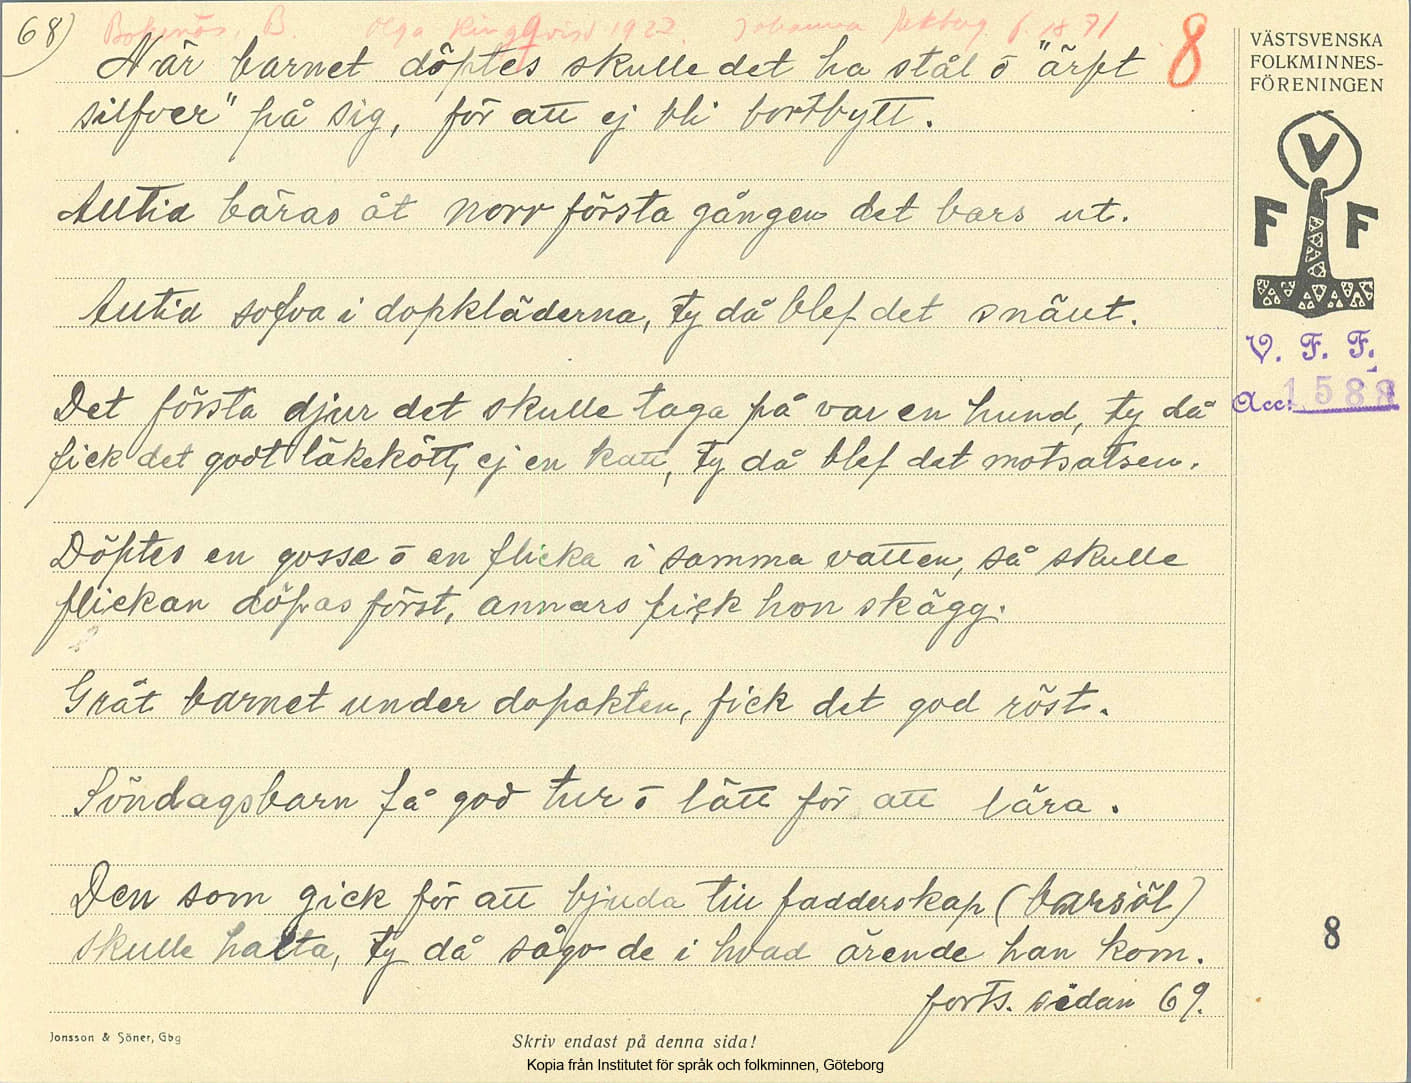 68)
Bokenäs, B. Olga Ringqvist 1922. Johanna f. 1871
9
8
När barnet döptes skulle det ha stål ō "ärft
silfver" på sig, för att ej bli bortbytt.
Alltid bäras åt norr första gången det bars ut.
Alltid sofva i dopkläderna, ty då blef det snällt.
Det första djur det skulle taga på var en hund, ty då
fick det godt läkekött, ej en katt, ty då blef det motsatsen.
Döptes en gosse ō en flicka i samma vatten, så skulle
flickan döpas först, annars fick hon skägg.
Gråt barnet under dopakten, fick det god röst.
Söndagsbarn få god tur ō lätt för att lära.
Den som gick för att bjuda till fadderskap (barsöl)
skulle halta, ty då sågo de i hvad ärende han kom.
forts. sidan 69.
VÄSTSVENSKA
FOLKMINNES-
FÖRENINGEN
V
F F
V. F. F.
Acc: 1588
8
Jonsson & Söner, Gbg
Skriv endast på denna sida!
Kopia från Institutet för språk och folkminnen, Göteborg